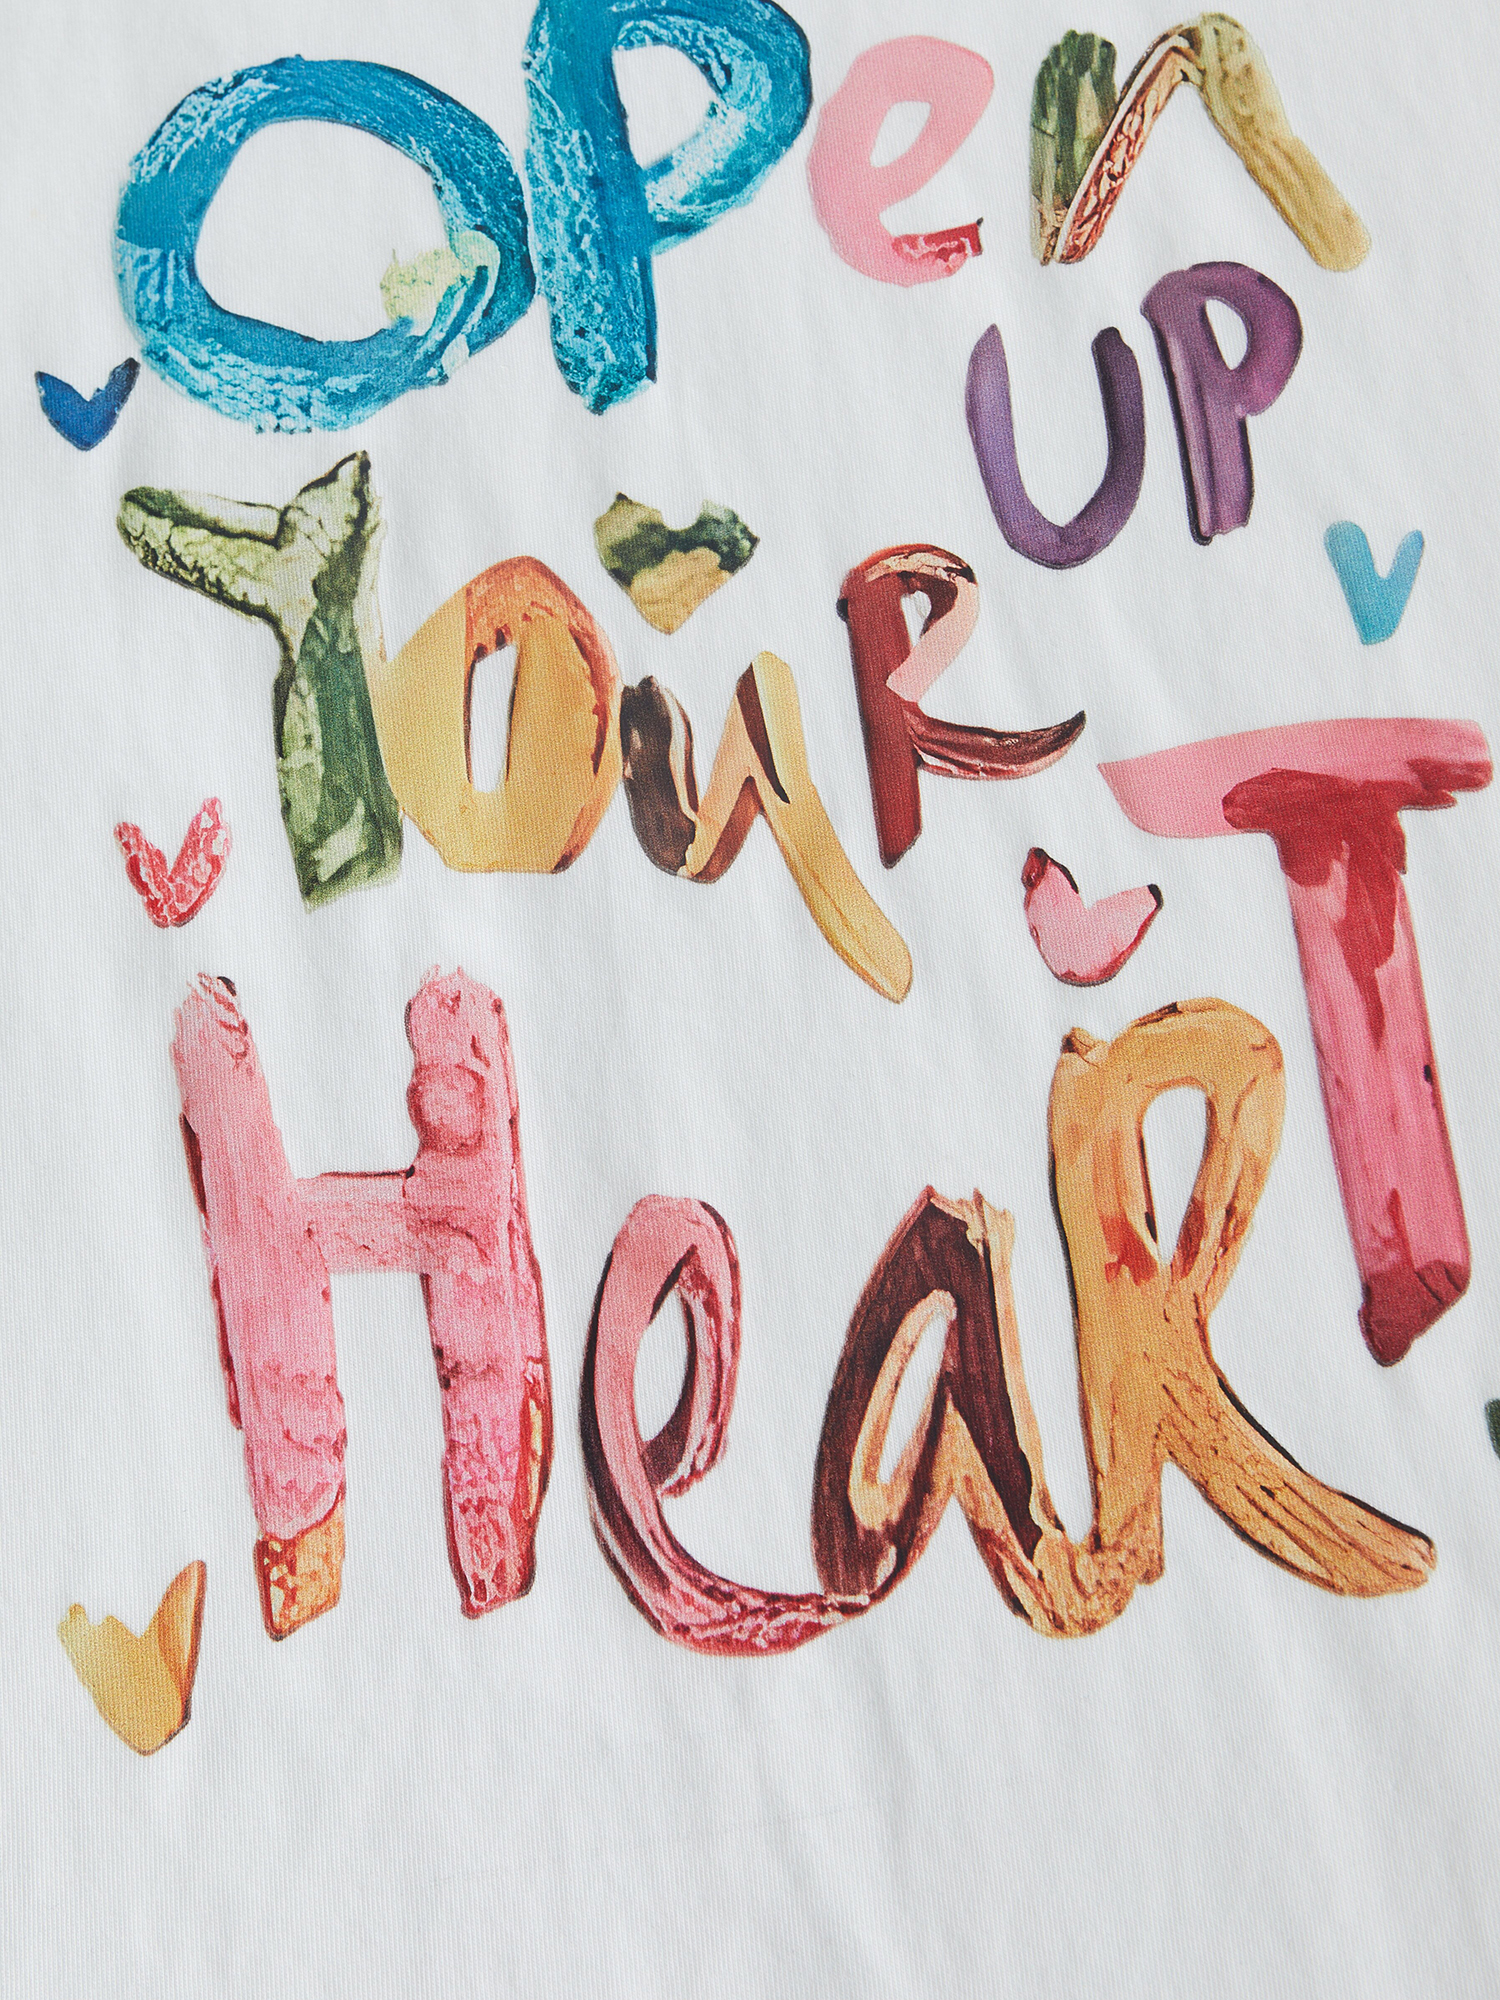 open
UP
Your
HeaRT